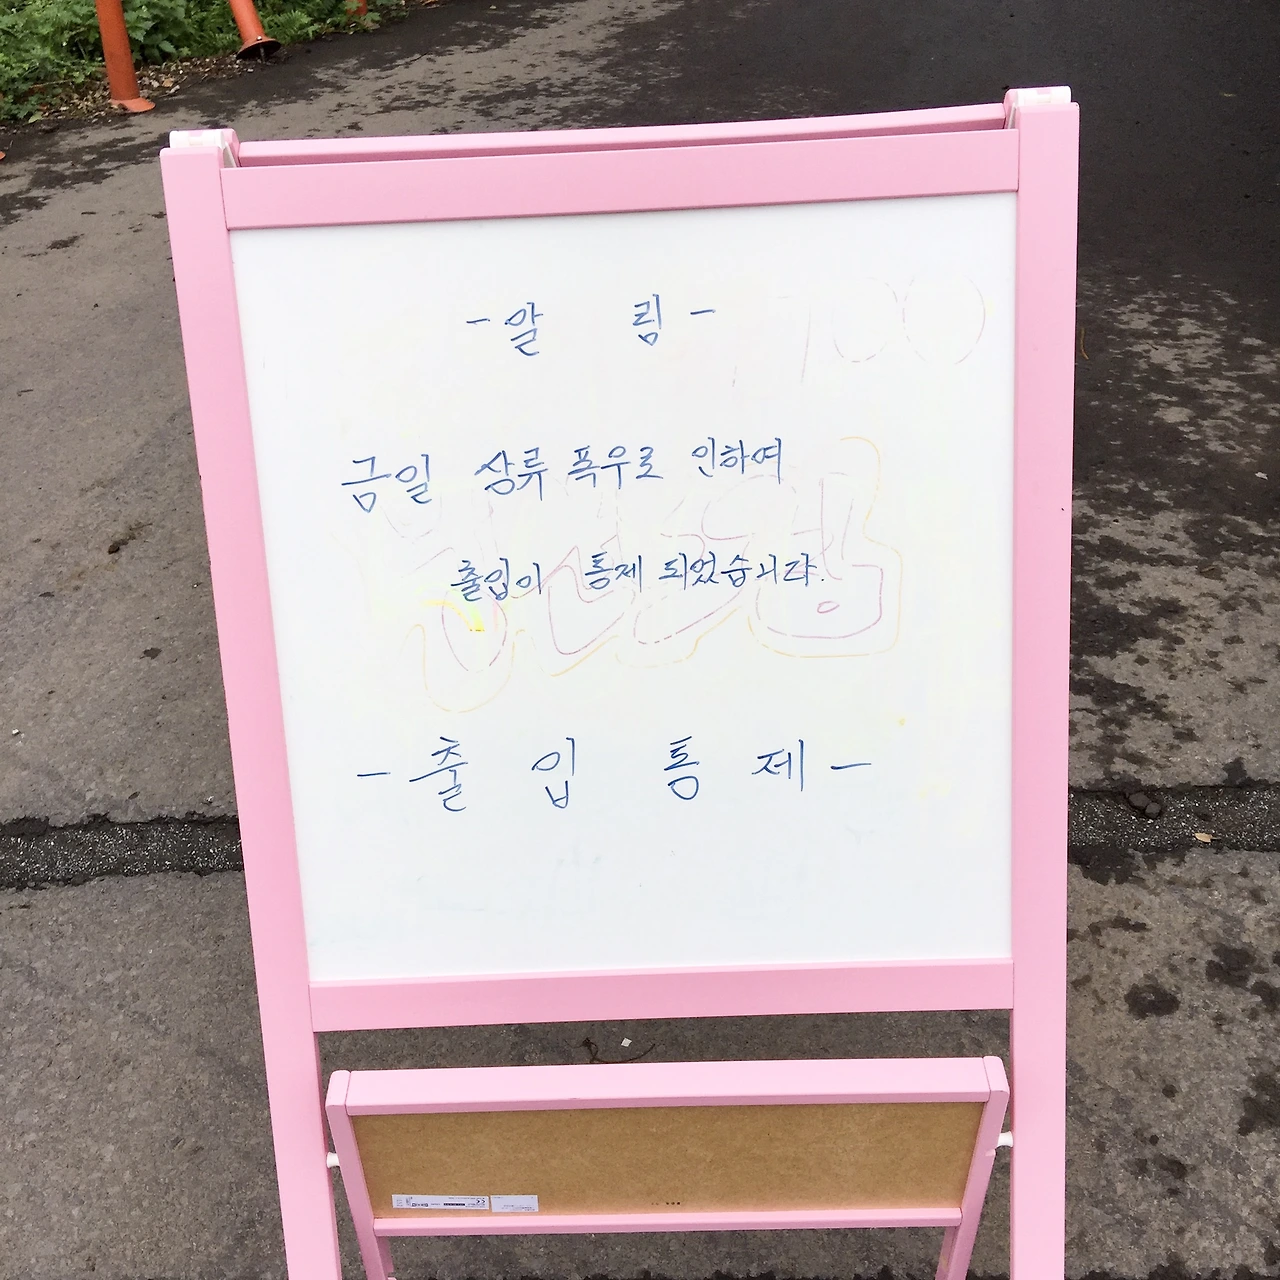 - 알 림 -
금일 상류 폭우로 인하여
출입이 통제 되었습니다.
- 출 입 통 제 -